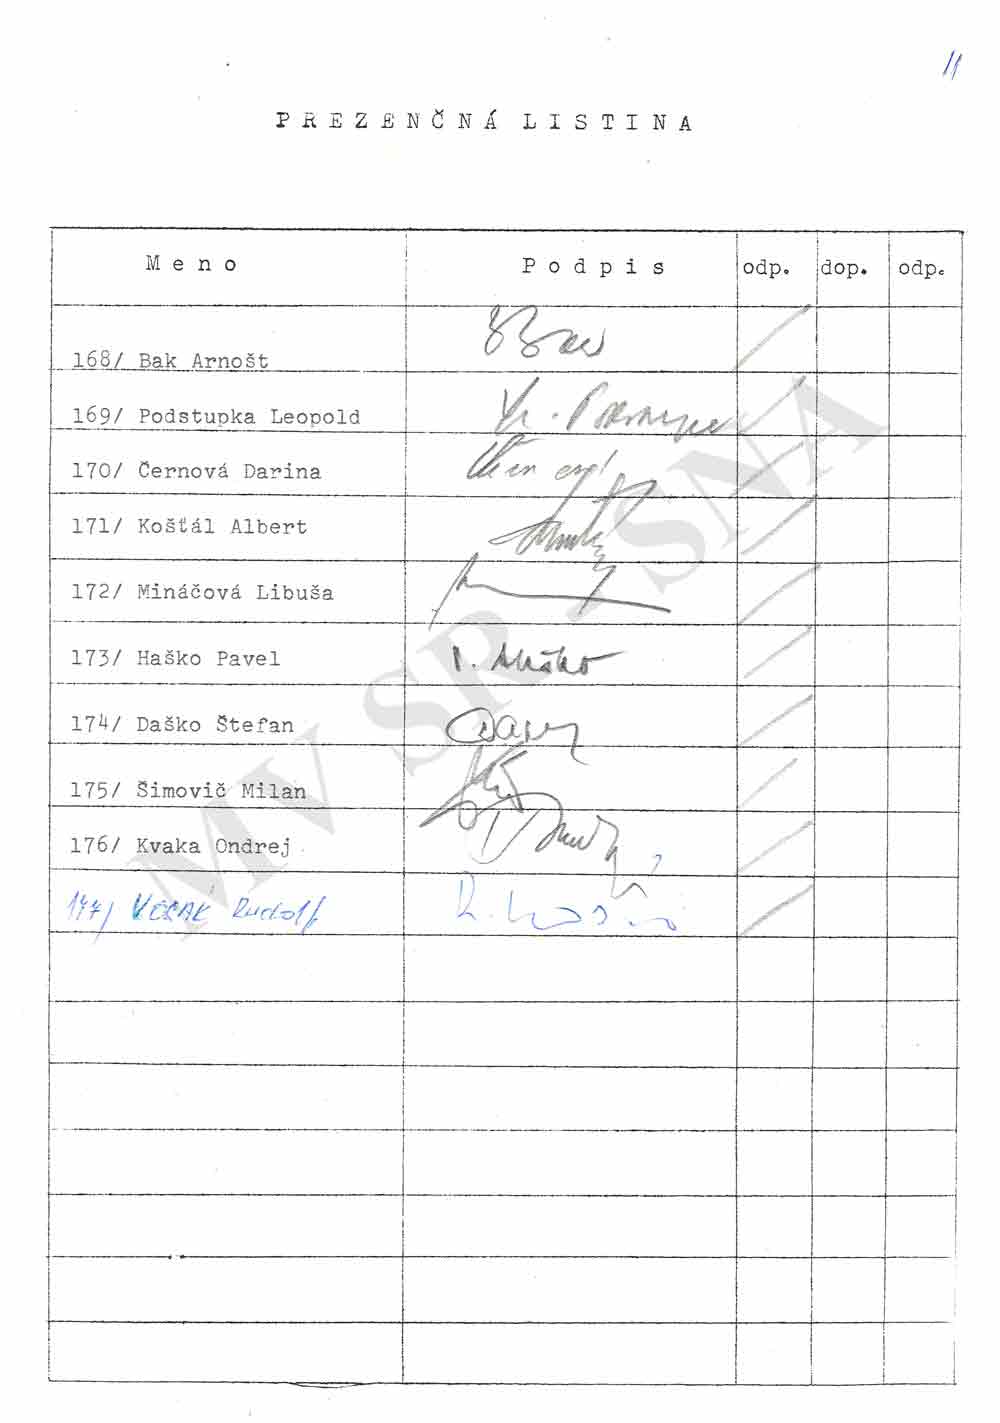 11
PREZENČNÁ LISTINA
Meno Podpis odp. dop. odp.
168/ Bak Arnošt
169/ Podstupka Leopold
170/ Černová Darina
171/ Košťál Albert
172/ Mináčová Libuša
173/ Haško Pavel
174/ Daško Štefan
175/ Šimovič Milan
176/ Kvaka Ondrej
177/ Rudolf
MV SR - SNA